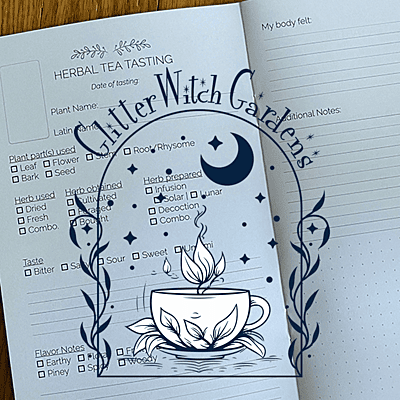 HERBAL TEA TASTING
Date of tasting
Plant Name:
Latin Name
GlitterWitch Gardens
My body felt:
Additional Notes:
Plant part(s) used
Leaf Flower Stem Root/Rhysome
Bark Seed
Herb used Herb obtained Herb prepared
Dried Cultivated Infusion
Fresh Foraged Solar Lunar
Combo. Bought Decoction
Combo
Taste
Bitter Salty Sour Sweet Umami
Flavor Notes
Earthy Floral
Piney Woody